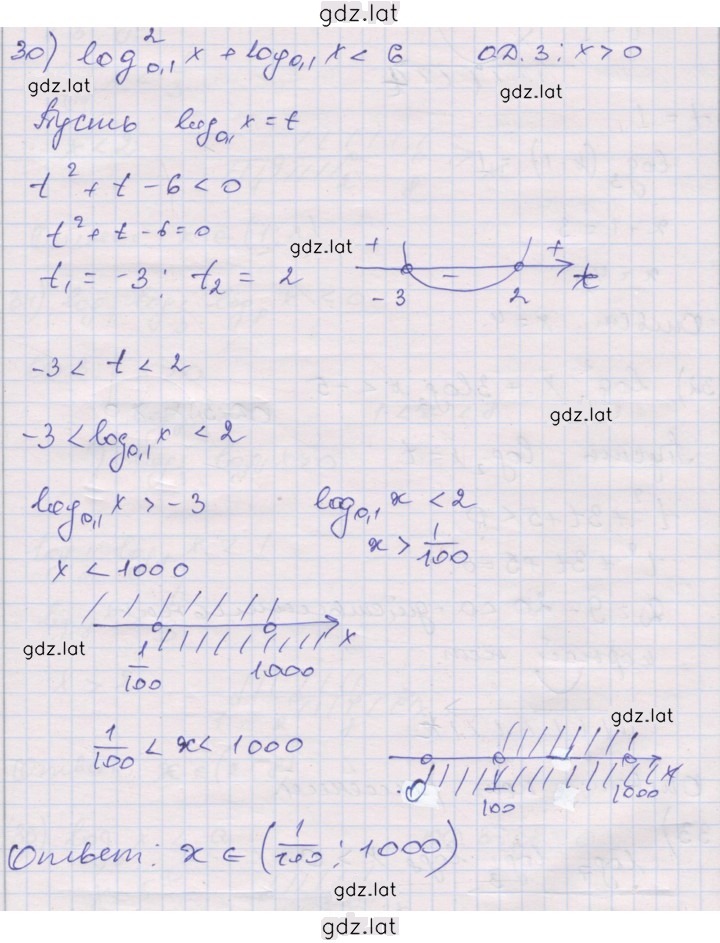 gdz.lat
30) log²₀,₁ x + log₀,₁ x < 6 О.Д.З: x > 0
gdz.lat gdz.lat
Пусть log₀,₁ x = t
t² + t - 6 < 0
t² + t - 6 = 0
gdz.lat
t₁ = -3; t₂ = 2
+ - + t
-3 2
-3 < t < 2
gdz.lat
-3 < log₀,₁ x < 2
log₀,₁ x > -3 log₀,₁ x < 2
x < 1000 x > 1/100
gdz.lat
1/100 1000 x
gdz.lat
1/100 < x < 1000
0 1/100 1000 x
Ответ: x ∈ (1/100; 1000)
gdz.lat
gdz.lat